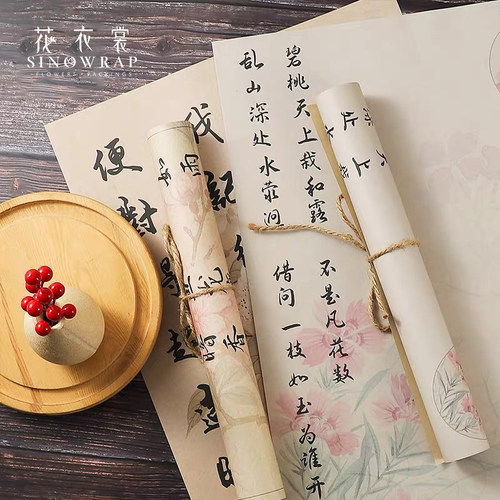 花衣裳
SINOWRAP
FLOWERS PACKINGS
碧桃天上栽和露
不是凡花数
乱山深处水萦洄
借问一枝如玉为谁开
我記
便對
天上